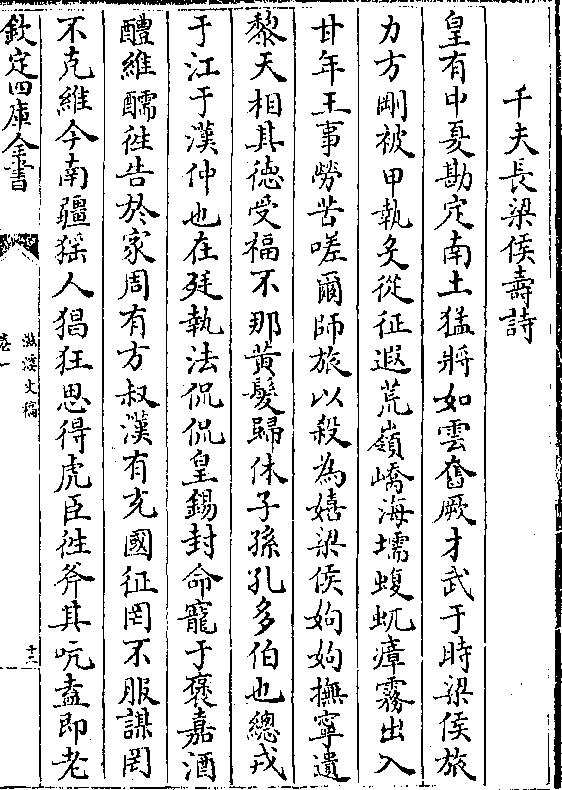 千夫長梁侯壽詩
皇有中夏勘定南土猛將如雲奮厥才武于時梁侯旅
力方剛被甲執殳從征遐荒嶺嶠海壖蝮虺瘴霧出入
廿年王事勞苦嗟爾師旅以殺為嬉梁侯姁姁撫寧遺
黎天相其德受福不那黄髮歸休子孫孔多伯也總戎
于江于漢仲也在廷執法侃侃皇錫封命寵于褒嘉酒
醴維醹徃告於家周有方叔漢有充國征罔不服謀罔
不克維今南疆猺人猖狂思得虎臣徃斧其吭盍即老
欽定四庫全書
滋溪文稿
卷一
十三